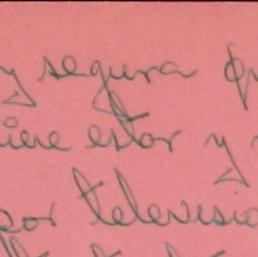 y segura
iere estar y
por televisio